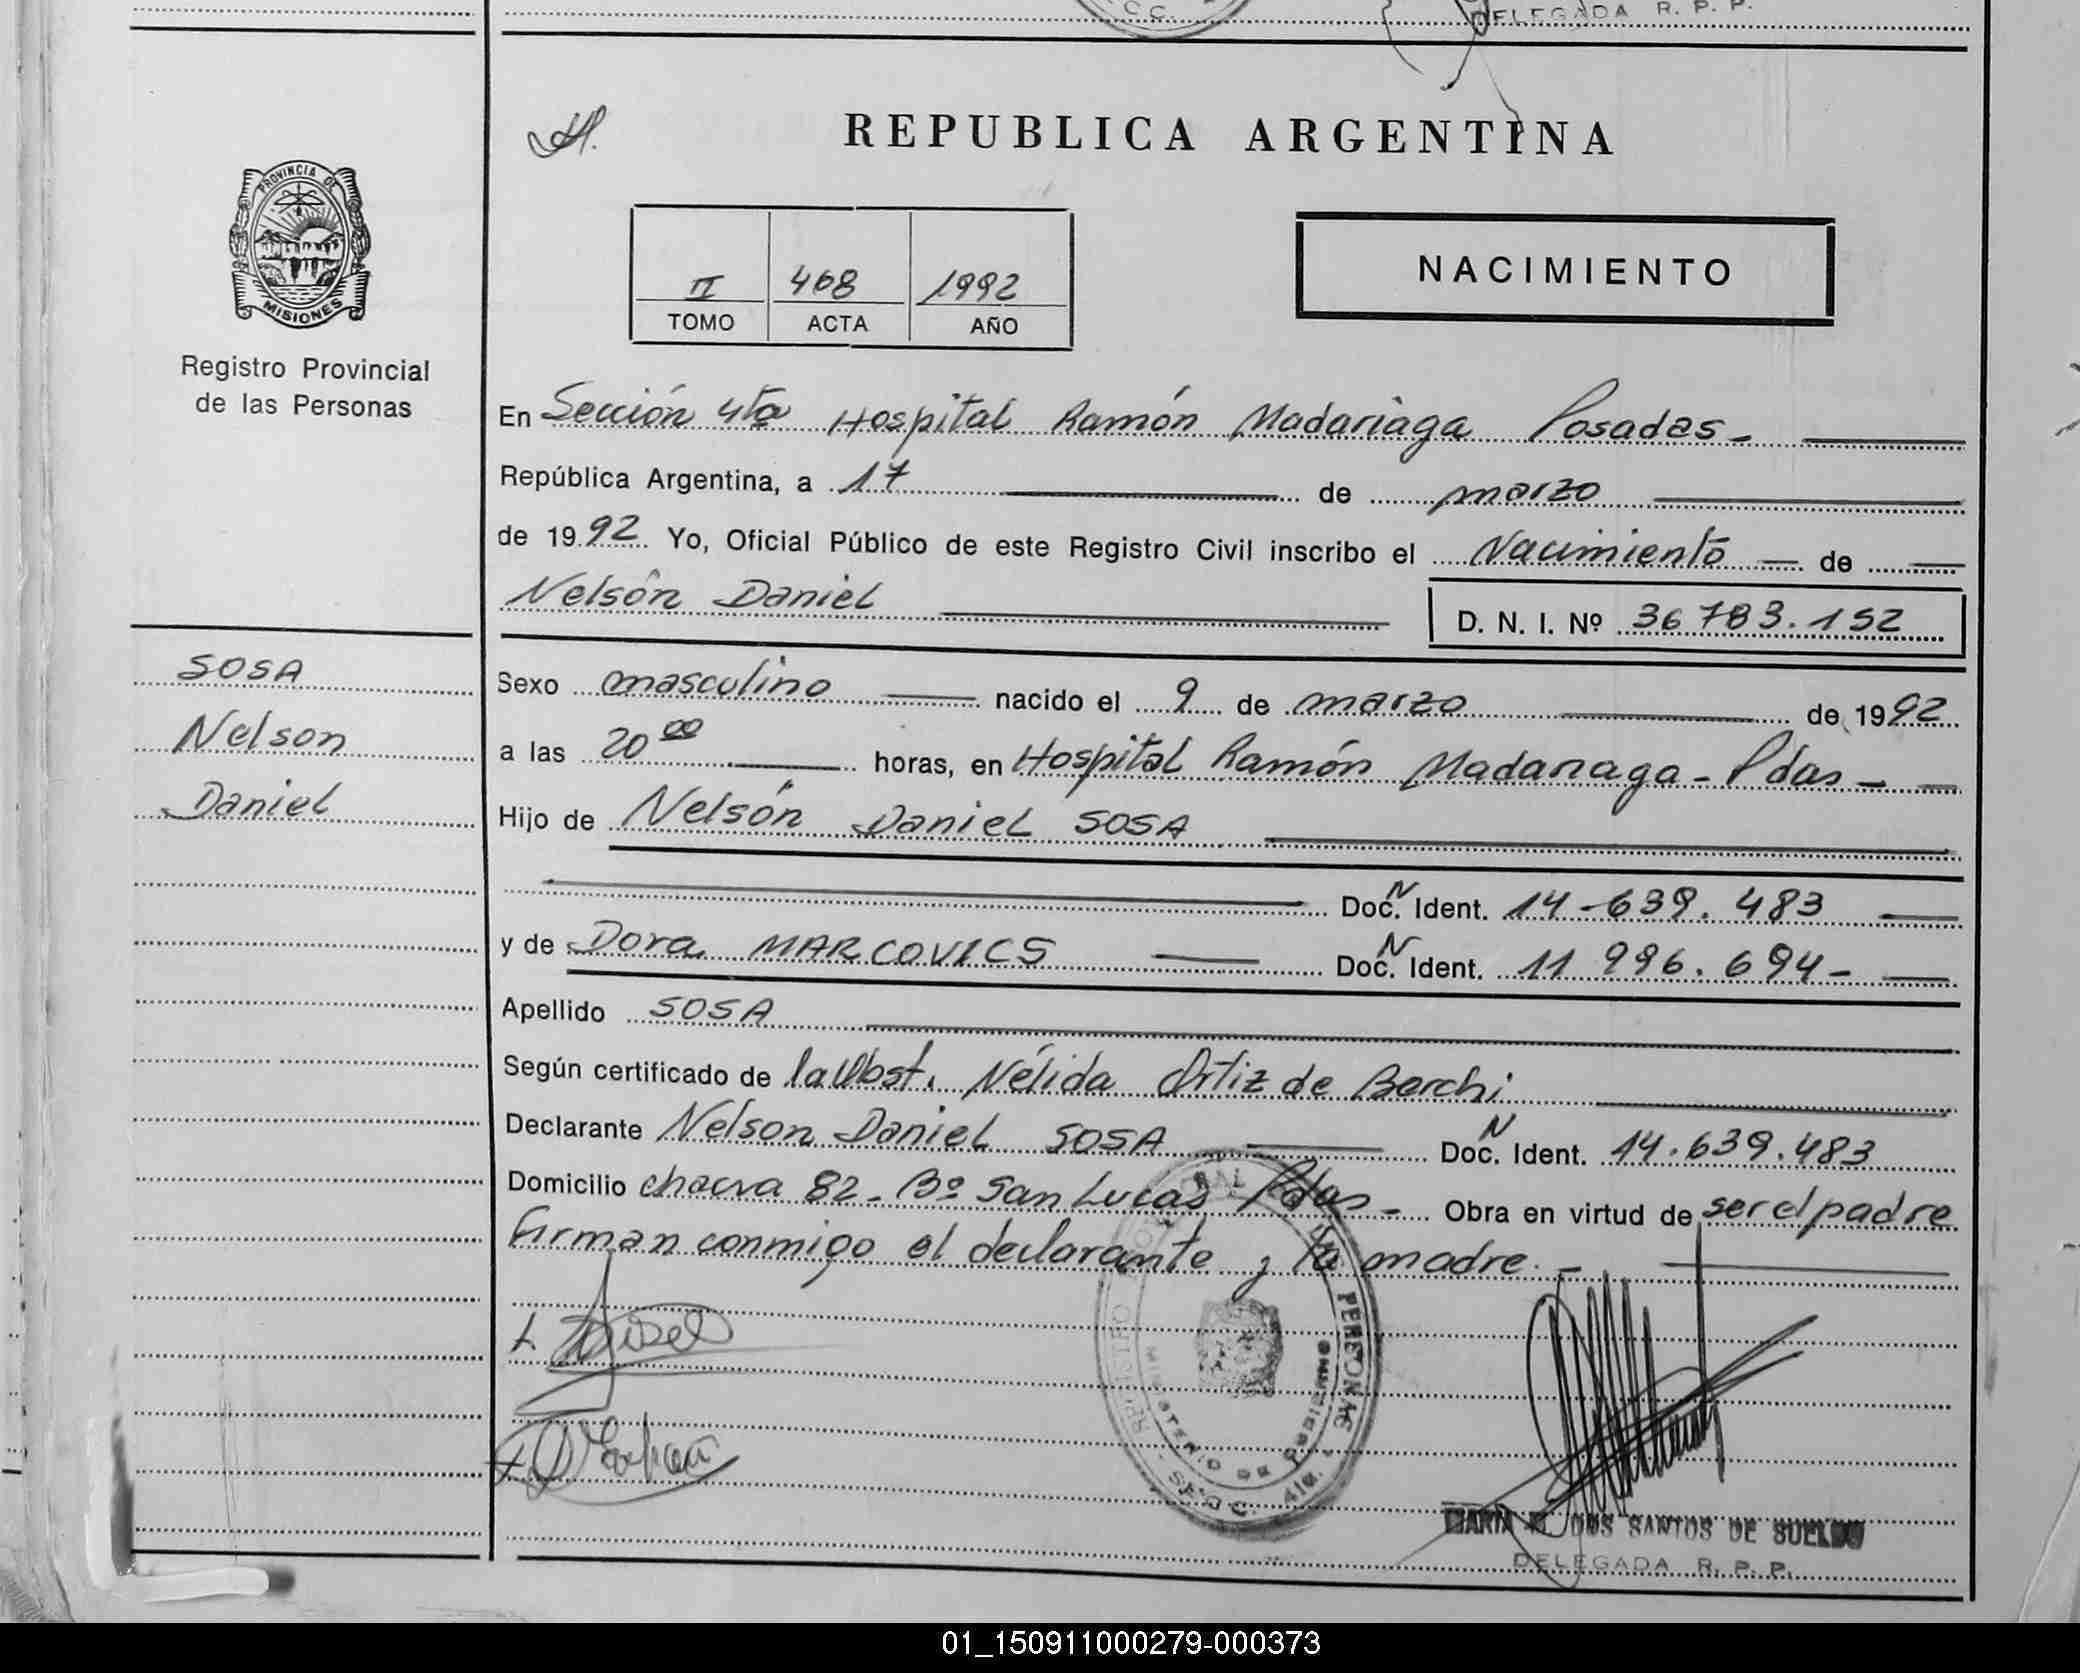 C.C.
DELEGADA R. P. P.
REPUBLICA ARGENTINA
PROVINCIA DE
MISIONES
Registro Provincial
de las Personas
II 468 1992
TOMO ACTA AÑO
NACIMIENTO
En Sección 4ta Hospital Ramón Madariaga Posadas-
República Argentina, a 17 de marzo
de 1992 Yo, Oficial Público de este Registro Civil inscribo el Nacimiento de
Nelsón Daniel D. N. I. Nº 36 783.152
SOSA
Nelson
Daniel
Sexo masculino nacido el 9 de marzo de 1992
a las 20 00 horas, en Hospital Ramón Madariaga - Pdas -
Hijo de Nelsón Daniel SOSA
Doc. N Ident. 14-639.483
y de Dora MARCOVICS Doc. N Ident. 11 996.694-
Apellido SOSA
Según certificado de la Obst. Nélida Ortiz de Berchi
Declarante Nelson Daniel SOSA Doc. N Ident. 14.639.483
Domicilio chacra 82 - Bº San Lucas Pdas - Obra en virtud de ser el padre
Firman conmigo el declarante y la madre. -
DOS SANTOS DE SUELDO
DELEGADA R. P. P.
01_150911000279-000373